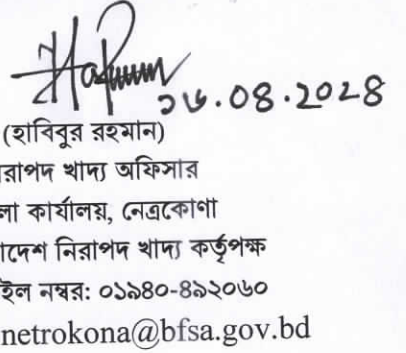 ২৬.০৪.২০২৪
(হাবিবুর রহমান)
রাপদ খাদ্য অফিসার
লা কার্যালয়, নেত্রকোণা
াদেশ নিরাপদ খাদ্য কর্তৃপক্ষ
ইল নম্বর: ০১৯৪০-৪৯২০৬০
netrokona@bfsa.gov.bd